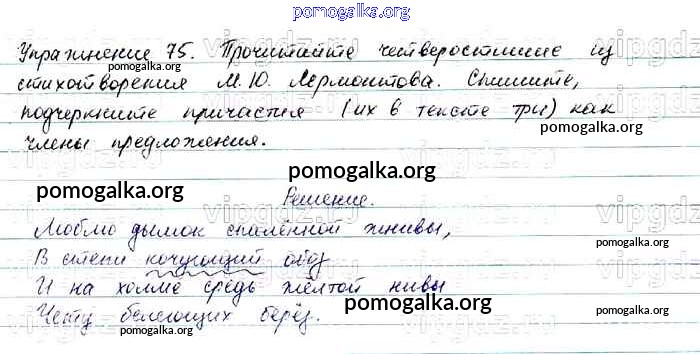 pomogalka.org
Упражнение 75. Прочитайте четверостишие из
стихотворения М. Ю. Лермонтова. Спишите,
pomogalka.org
подчеркните причастия (их в тексте три) как
pomogalka.org
члены предложения.
pomogalka.org
pomogalka.org
Решение.
Люблю дымок спалённой жнивы,
pomogalka.org
В степи кочующий обоз
И на холме средь жёлтой нивы
pomogalka.org
pomogalka.org
Чету белеющих берёз.
pomogalka.org